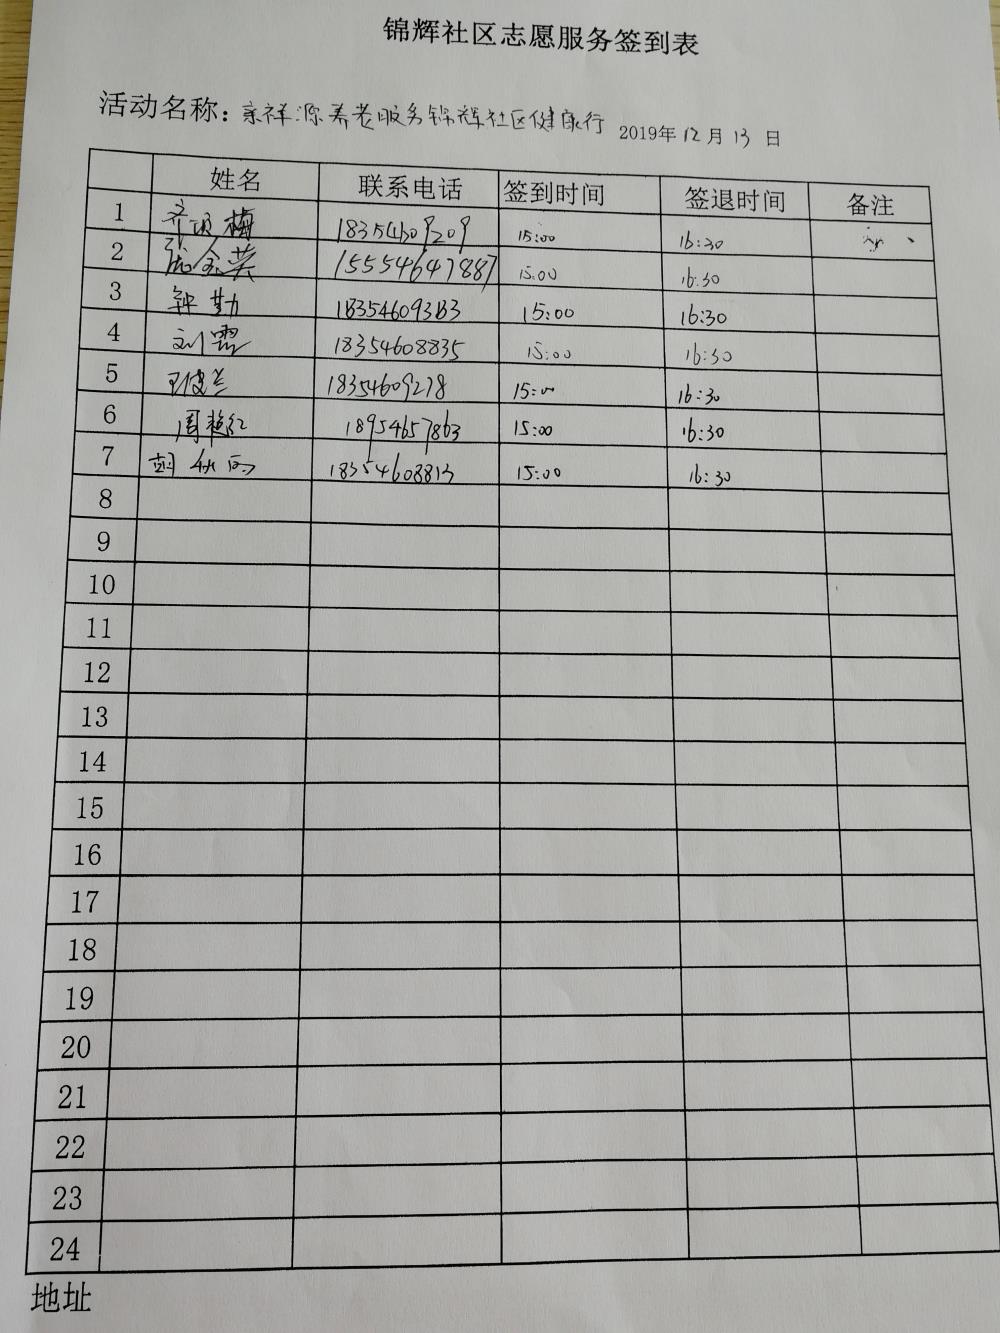 锦辉社区志愿服务签到表
活动名称：亲祥源养老服务锦辉社区健康行 2019年12月13日
姓名 联系电话 签到时间 签退时间 备注
1 梅 15:00 16:30
2 张金英 15554647887 15:00 16:30
3 钟勤 15:00 16:30
4 刘霞 18354608835 15:00 16:30
5 18354609278 15:00 16:30
6 周艳红 18954657863 15:00 16:30
7 胡秋雨 18354608813 15:00 16:30
8
9
10
11
12
13
14
15
16
17
18
19
20
21
22
23
24
地址